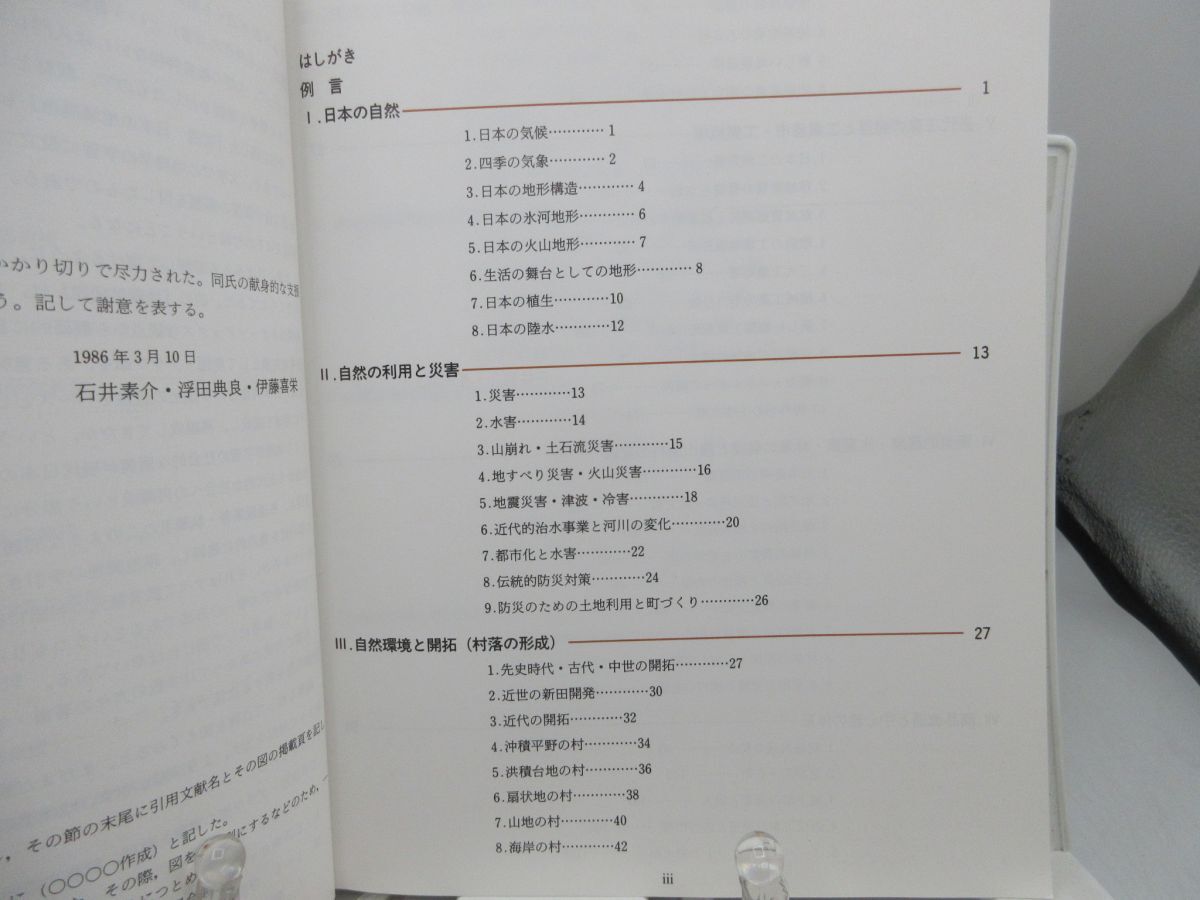 かかり切りで尽力された。同氏の献身的な支援
う。記して謝意を表する。
1986年3月10日
石井素介・浮田典良・伊藤喜栄
，その節の末尾に引用文献名とその図の掲載頁を記し
に（〇〇〇〇作成）と記した。
その際，図を
にするなどのため，
につとめ
はしがき
例　言
Ⅰ.日本の自然 1
1.日本の気候…………1
2.四季の気象…………2
3.日本の地形構造…………4
4.日本の氷河地形…………6
5.日本の火山地形…………7
6.生活の舞台としての地形…………8
7.日本の植生…………10
8.日本の陸水…………12
Ⅱ.自然の利用と災害 13
1.災害…………13
2.水害…………14
3.山崩れ・土石流災害…………15
4.地すべり災害・火山災害…………16
5.地震災害・津波・冷害…………18
6.近代的治水事業と河川の変化…………20
7.都市化と水害…………22
8.伝統的防災対策…………24
9.防災のための土地利用と町づくり…………26
Ⅲ.自然環境と開拓（村落の形成） 27
1.先史時代・古代・中世の開拓…………27
2.近世の新田開発…………30
3.近代の開拓…………32
4.沖積平野の村…………34
5.洪積台地の村…………36
6.扇状地の村…………38
7.山地の村…………40
8.海岸の村…………42
iii